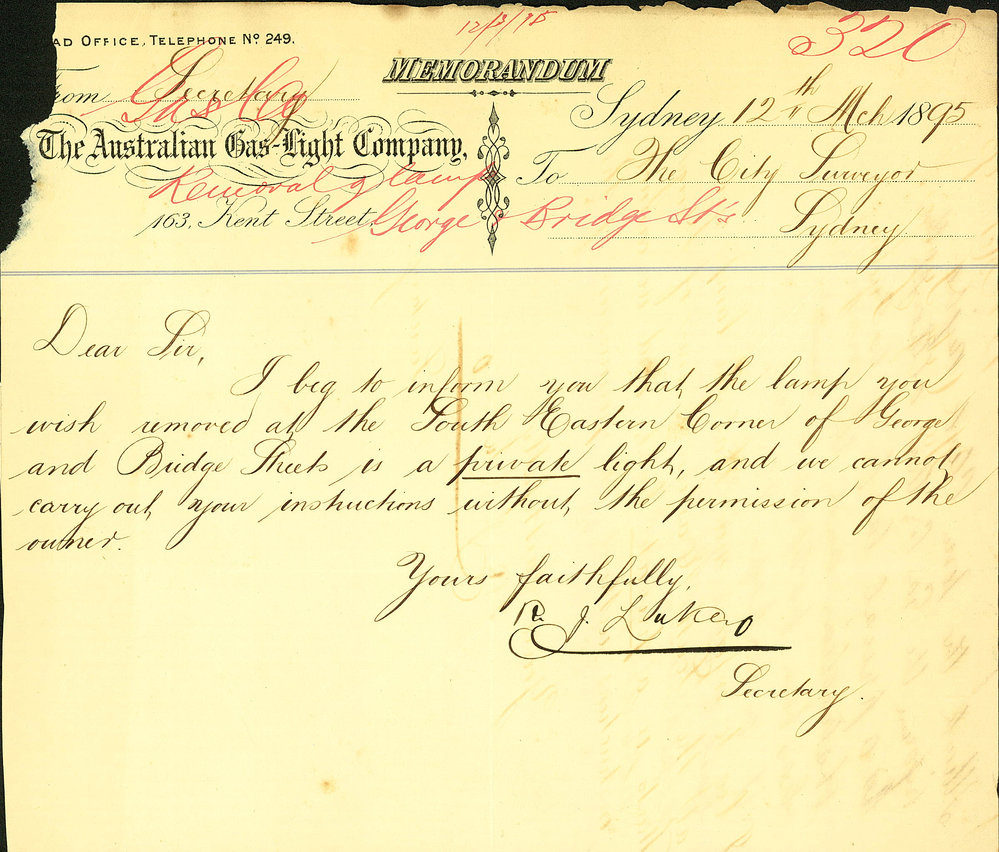 12/3/95
320
AD OFFICE, TELEPHONE No 249.
MEMORANDUM
rom Secretary
Gas Co
Sydney 12th Mch 1895
The Australian Gas-Light Company,
To The City Surveyor
Removal of lamp
163, Kent Street.
George & Bridge St's
Sydney
Dear Sir,
I beg to inform you that the lamp you
wish removed at the South Eastern Corner of George
and Bridge Streets is a private light, and we cannot
carry out your instructions without the permission of the
owner.
Yours faithfully,
R. J. Lukey
Secretary.